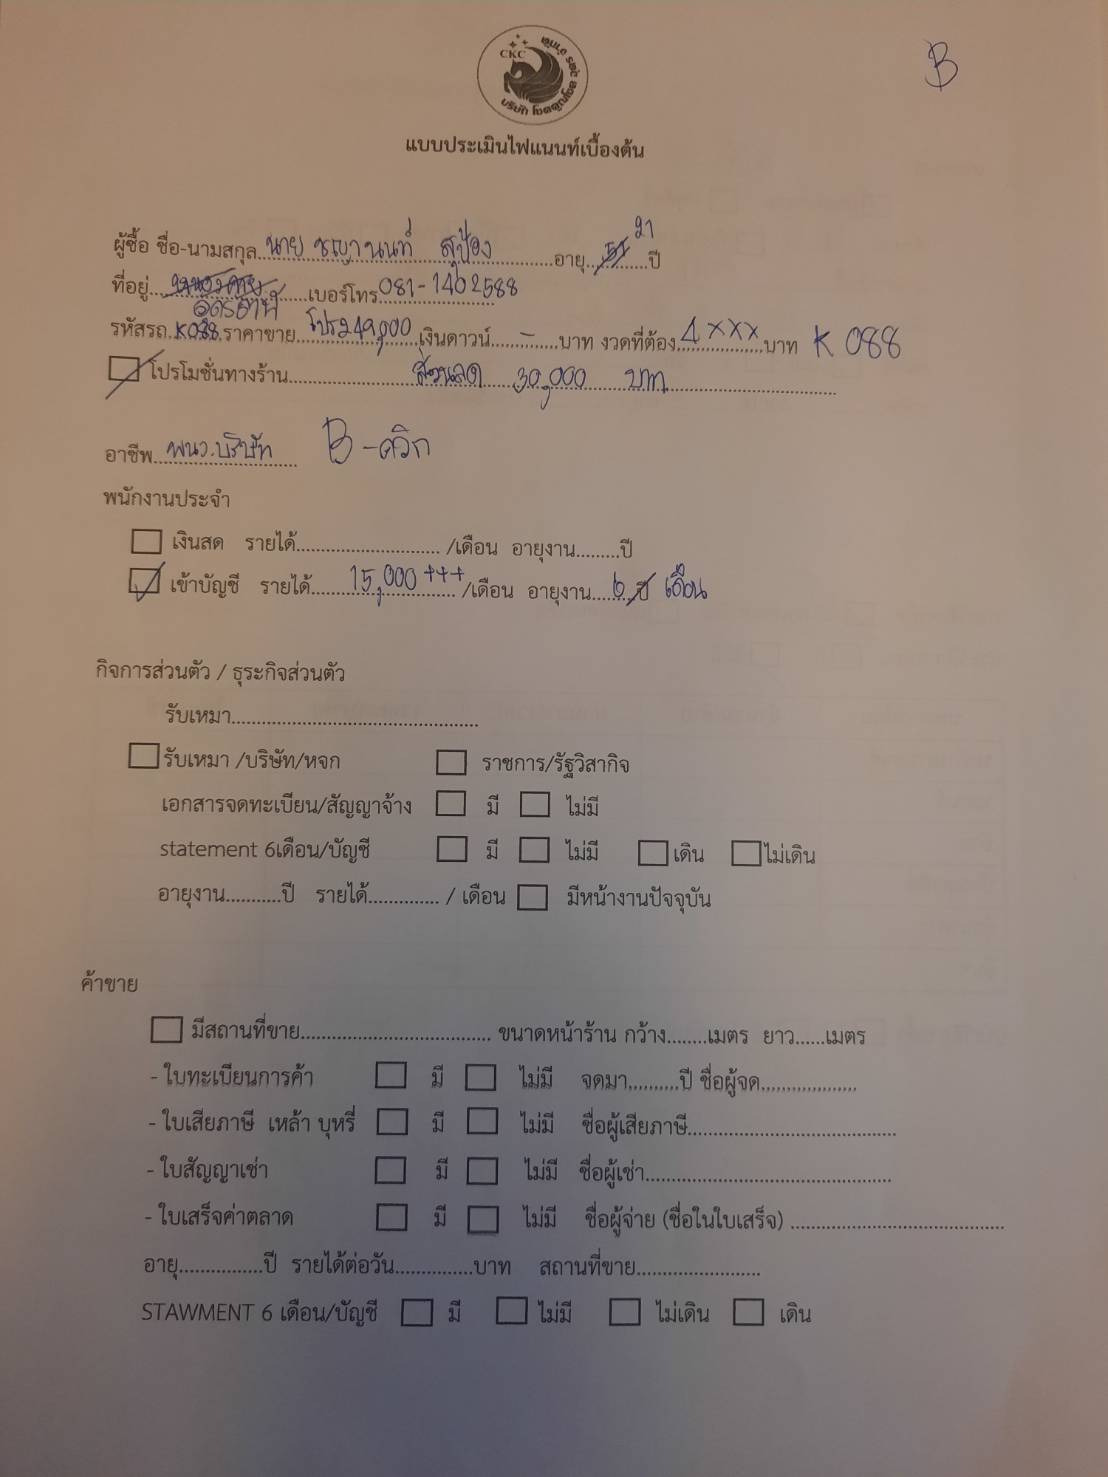 CKC
บริษัท โชคคูณโชค ออโต้ จำกัด
B
แบบประเมินไฟแนนท์เบื้องต้น
ผู้ซื้อ ชื่อ-นามสกุล..นาย ชญานนท์ สุป้อง..........อายุ..51 21......ปี
ที่อยู่............อุดรธานี......เบอร์โทร 081-1402588
รหัสรถ..K088..ราคาขาย...โปร249,000...เงินดาวน์.....-.....บาท งวดที่ต้อง..4xxx.....บาท K 088
โปรโมชั่นทางร้าน..............ส่วนลด 30,000 บาท................
อาชีพ..พนง.บริษัท..... B-ควิก
พนักงานประจำ
เงินสด รายได้.............................. /เดือน อายุงาน.........ปี
เข้าบัญชี รายได้.......15,000 +++...... /เดือน อายุงาน.....6...ปี เดือน
กิจการส่วนตัว / ธุระกิจส่วนตัว
รับเหมา....................................................
รับเหมา /บริษัท/หจก ราชการ/รัฐวิสากิจ
เอกสารจดทะเบียน/สัญญาจ้าง มี ไม่มี
statement 6เดือน/บัญชี มี ไม่มี เดิน ไม่เดิน
อายุงาน...........ปี รายได้.............. / เดือน มีหน้างานปัจจุบัน
ค้าขาย
มีสถานที่ขาย........................................ ขนาดหน้าร้าน กว้าง........เมตร ยาว......เมตร
- ใบทะเบียนการค้า มี ไม่มี จดมา..........ปี ชื่อผู้จด...................
- ใบเสียภาษี เหล้า บุหรี่ มี ไม่มี ชื่อผู้เสียภาษี..........................................
- ใบสัญญาเช่า มี ไม่มี ชื่อผู้เช่า..................................................
- ใบเสร็จค่าตลาด มี ไม่มี ชื่อผู้จ่าย (ชื่อในใบเสร็จ) ............................................
อายุ.................ปี รายได้ต่อวัน................บาท สถานที่ขาย.........................
STAWMENT 6 เดือน/บัญชี มี ไม่มี ไม่เดิน เดิน